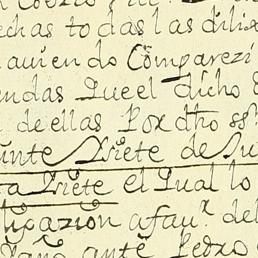 echas todas las dilix
auiendo Comparezi
ndas Que el dicho
de ellas Por dho ssno
inte Y siete de Ju
ta Y siete el Qual lo
licazion a fau.r del
ante Pedro